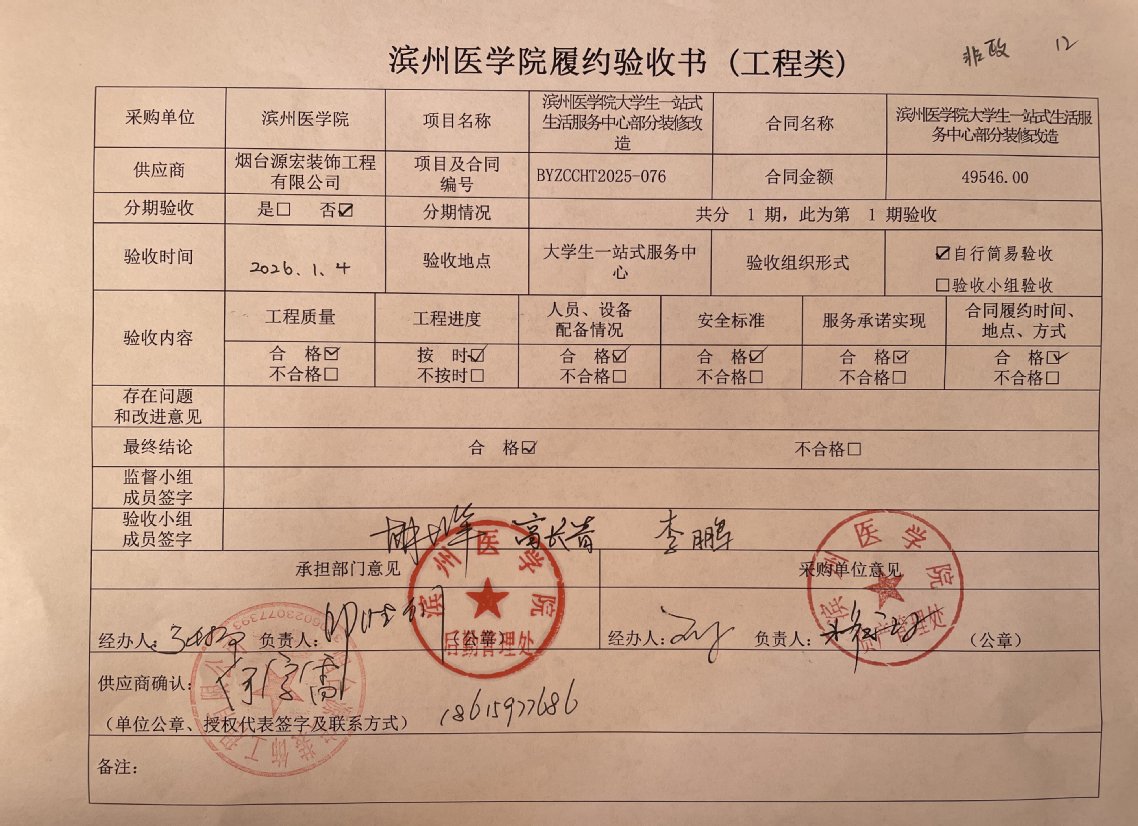 非政 12
滨州医学院履约验收书（工程类）
采购单位 滨州医学院 项目名称 滨州医学院大学生一站式生活服务中心部分装修改造 合同名称 滨州医学院大学生一站式生活服务中心部分装修改造
供应商 烟台源宏装饰工程有限公司 项目及合同编号 BYZCCHT2025-076 合同金额 49546.00
分期验收 是□ 否☑ 分期情况 共分 1 期，此为第 1 期验收
验收时间 2026.1.4 验收地点 大学生一站式服务中心 验收组织形式 ☑自行简易验收
□验收小组验收
验收内容 工程质量 工程进度 人员、设备配备情况 安全标准 服务承诺实现 合同履约时间、地点、方式
合 格☑ 按 时☑ 合 格☑ 合 格☑ 合 格☑ 合 格☑
不合格□ 不按时□ 不合格□ 不合格□ 不合格□ 不合格□
存在问题
和改进意见
最终结论 合 格☑ 不合格□
监督小组
成员签字
验收小组
成员签字 高长青 李鹏
承担部门意见 采购单位意见
经办人： 负责人： （公章） 经办人： 负责人： （公章）
滨州医学院
后勤管理处
滨州医学院
资产管理处
供应商确认：
（单位公章、授权代表签字及联系方式） 18615977686
备注：